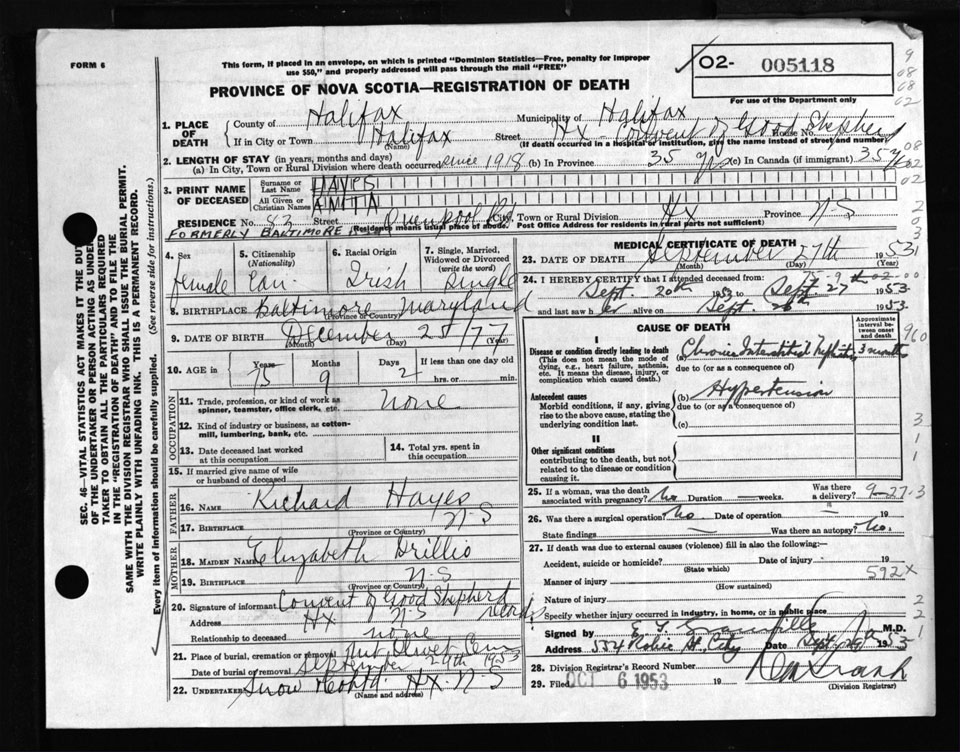 FORM 6
This form, if placed in an envelope, on which is printed "Dominion Statistics—Free, penalty for improper
use $50," and properly addressed will pass through the mail "FREE"
O2- 005118
For use of the Department only
PROVINCE OF NOVA SCOTIA—REGISTRATION OF DEATH
1. PLACE OF DEATH { County of Halifax Municipality of Halifax
If in City or Town Halifax (Name) Street Hx - Convent of Good Shepherd House No.
(If death occurred in a hospital or institution, give the name instead of street and number)
2. LENGTH OF STAY (in years, months and days)
(a) In City, Town or Rural Division where death occurred since 1918 (b) In Province 35 yrs (c) In Canada (if immigrant) 35 yrs
3. PRINT NAME OF DECEASED { Surname or Last Name HAYES
All Given or Christian Names ANITA
RESIDENCE No. 83 Street City, Town or Rural Division Hx Province N-S
FORMERLY BALTIMORE (Residence means usual place of abode. Post Office Address for residents in rural parts not sufficient)
4. Sex female
5. Citizenship (Nationality) Can.
6. Racial Origin Irish
7. Single, Married, Widowed or Divorced (write the word) Single
8. BIRTHPLACE Baltimore Maryland
(Province or Country)
9. DATE OF BIRTH December 25/77
(Month) (Day) (Year)
10. AGE in Years 75 Months 9 Days 2 If less than one day old
hrs. or min.
OCCUPATION
11. Trade, profession, or kind of work as
spinner, teamster, office clerk, etc. none
12. Kind of industry or business, as cotton-
mill, lumbering, bank, etc.
13. Date deceased last worked
at this occupation
14. Total yrs. spent in
this occupation
15. If married give name of wife
or husband of deceased
FATHER
16. NAME Richard Hayes
17. BIRTHPLACE N-S
(Province or Country)
MOTHER
18. MAIDEN NAME Elizabeth Drillio
19. BIRTHPLACE N-S
(Province or Country)
20. Signature of informant Convent of Good Shepherd
Address Hx N-S records
Relationship to deceased none
21. Place of burial, cremation or removal Mt Olivet Cem
Date of burial or removal September 29th 1953
22. UNDERTAKER Snow Hx. N-S
(Name and address)
MEDICAL CERTIFICATE OF DEATH
23. DATE OF DEATH September 27th 1953
(Month) (Day)
24. I HEREBY CERTIFY that I attended deceased from: 75-9 02-00
Sept. 20th 1953 to Sept. 27th 1953
and last saw her alive on Sept. 1953
CAUSE OF DEATH
Approximate interval between onset and death
I
Disease or condition directly leading to death
(This does not mean the mode of
dying, e.g., heart failure, asthenia,
etc. It means the disease, injury, or
complication which caused death.)
(a) Chronic Interstitial Nephritis 3 months
due to (or as a consequence of)
Antecedent causes
Morbid conditions, if any, giving
rise to the above cause, stating the
underlying condition last.
(b) Hypertension
due to (or as a consequence of)
(c)
II
Other significant conditions
contributing to the death, but not
related to the disease or condition
causing it.
25. If a woman, was the death
associated with pregnancy? No Duration weeks. Was there
a delivery? 9-27-3
26. Was there a surgical operation? No Date of operation
State findings — Was there an autopsy? No.
27. If death was due to external causes (violence) fill in also the following:
Accident, suicide or homicide? Date of injury 19
(State which)
592X
Manner of injury
(How sustained)
Nature of injury
Specify whether injury occurred in industry, in home, or in public place
Signed by M.D.
Address 334 Robie St, City Date Sept. 1953
28. Division Registrar's Record Number
29. Filed OCT 6 1953 19
(Division Registrar)
SEC. 46—VITAL STATISTICS ACT MAKES IT THE DUTY
OF THE UNDERTAKER OR PERSON ACTING AS UNDER-
TAKER TO OBTAIN ALL THE PARTICULARS REQUIRED
IN THE "REGISTRATION OF DEATH" AND TO FILE THE
SAME WITH THE DIVISION REGISTRAR WHO SHALL ISSUE THE BURIAL PERMIT.
WRITE PLAINLY WITH UNFADING INK. THIS IS A PERMANENT RECORD.
Every item of information should be carefully supplied. (See reverse side for instructions.)